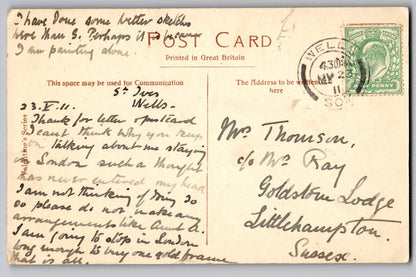 I have done some better sketches
here than S. Perhaps it is because
I am painting alone.
POST CARD
Printed in Great Britain
This space may be used for Communication
The Address to be written
here
WELLS
4 30PM
MY 23
11
SOM
PENNY
St Ives
Wells-
23.V.11.
Thanks for letter & postcard
I cant think why you keep
on talking about me staying
in London such a thought
has never entered my head
I am not thinking of doing so
so please do not make any
arrangements like Aunt A.
I am going to stop in London
long enough to buy one gold frame
that is all.
Series
Mrs Thomson,
c/o Mrs Ray
Goldston Lodge
Littlehampton.
Sussex.